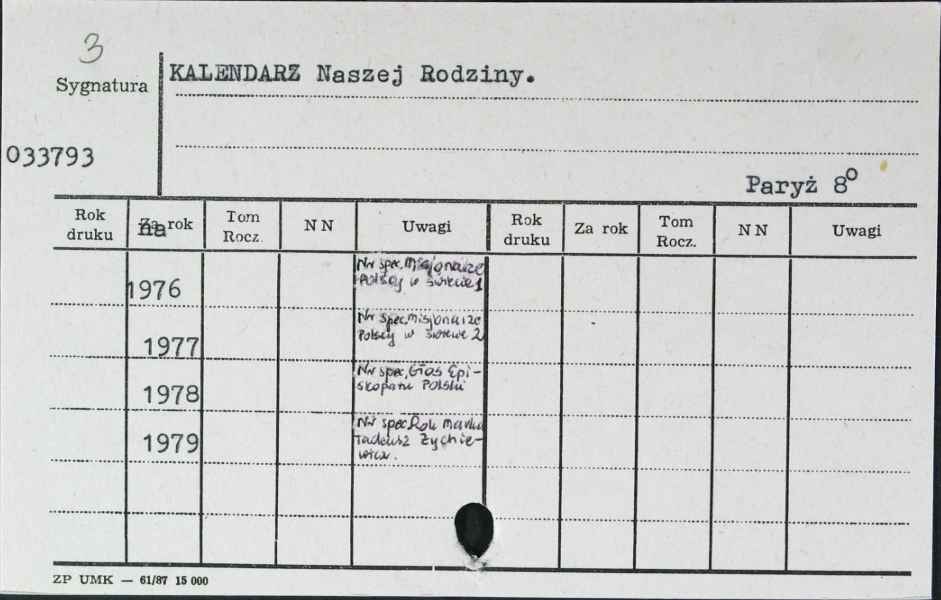 3
Sygnatura
KALENDARZ Naszej Rodziny.
033793
Paryż 8°
Rok druku
Za rok
na
Tom Rocz.
N N
Uwagi
Rok druku
Za rok
Tom Rocz.
N N
Uwagi
1976
Nr spec. Misjonarze
Polscy w świecie 1
1977
Nr spec. Misjonarze
Polscy w świecie 2
1978
Nr spec. Głos Epi-
skopatu Polski
1979
Nr spec. Rok
Tadeusz Żychie-
wicz.
ZP UMK — 61/87 15 000